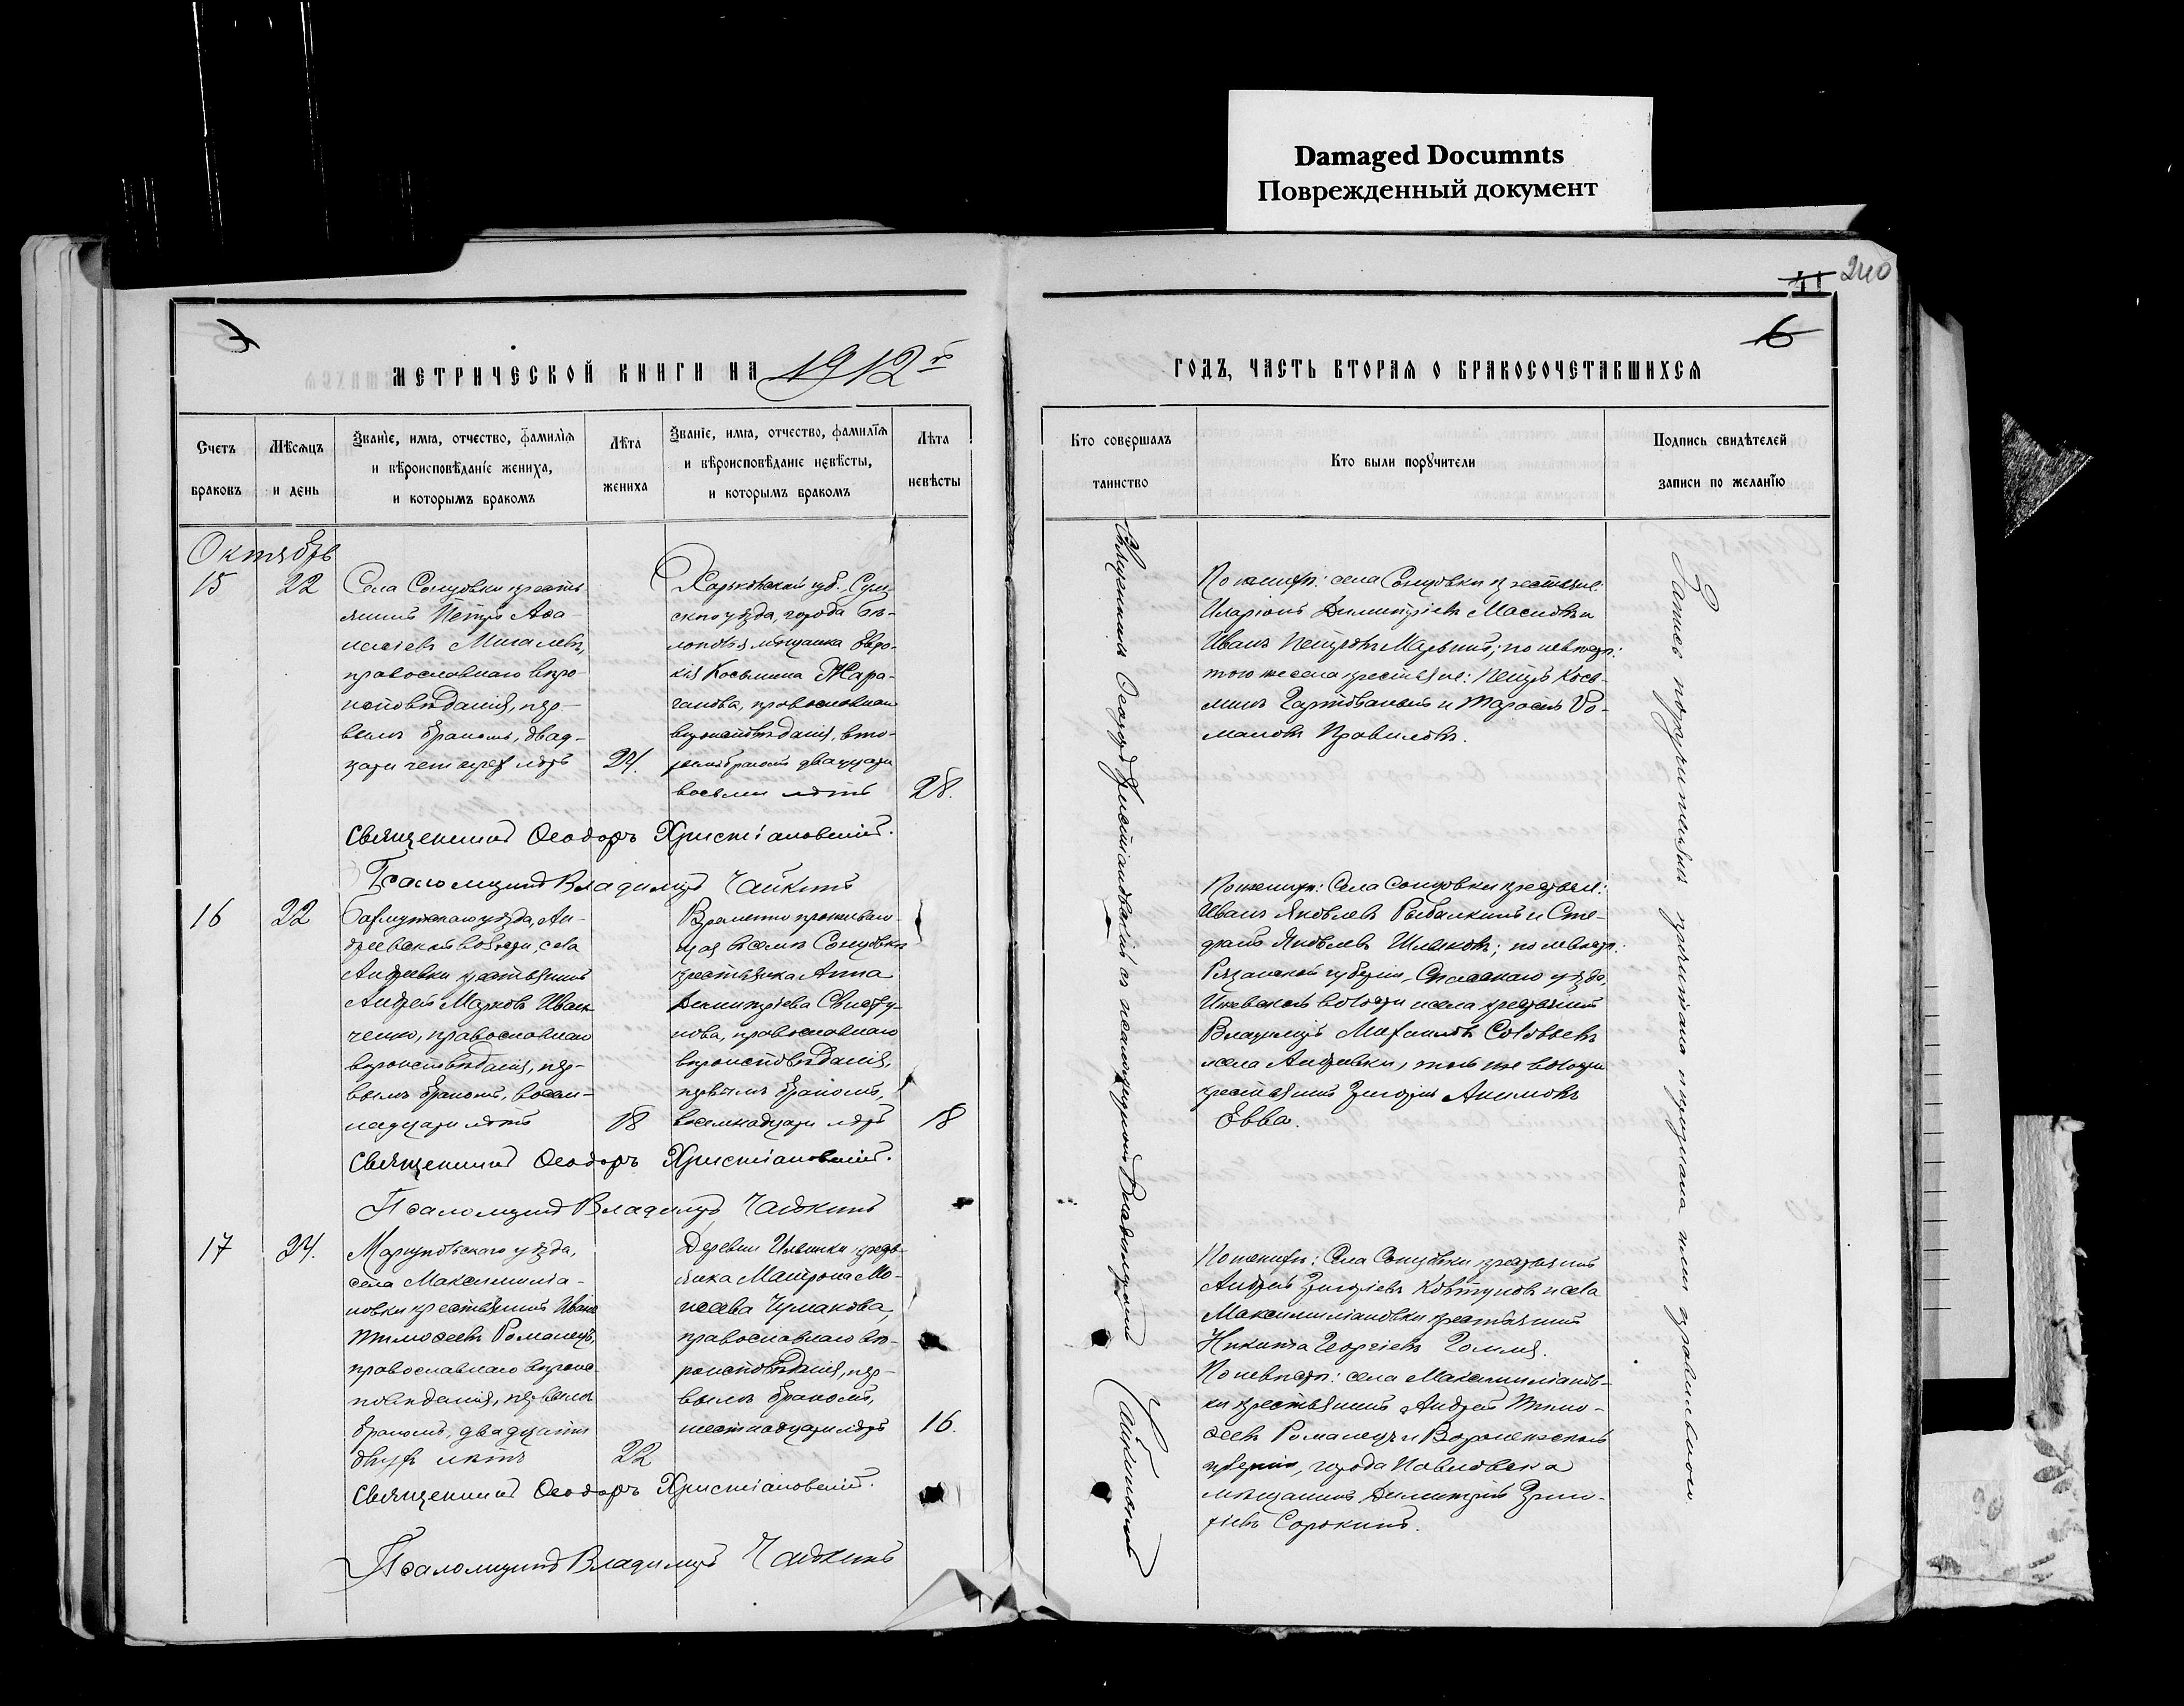 Damaged Documnts
Поврежденный документ
11 240
6
МЕТРИЧЕСКОЙ КНИГИ НА 1912 й
ГОДЪ, ЧАСТЬ ВТОРАЯ О БРАКОСОЧЕТАВШИХСЯ
Счетъ браковъ
Мѣсяцъ и день
Званіе, имя, отчество, фамилія
и вѣроисповѣданіе жениха,
и которымъ бракомъ
Лѣта жениха
Званіе, имя, отчество, фамилія
и вѣроисповѣданіе невѣсты,
и которымъ бракомъ
Лѣта невѣсты
Кто совершалъ таинство
Кто были поручители
Подпись свидѣтелей
записи по желанію
Октябрь
15 22
Села Сонцовки кресть
янинъ Петръ Аѳа-
насіевъ
православнаго вѣро-
исповѣданія, пер-
вымъ бракомъ, двад-
цати четырех лѣтъ
24.
Харьковской губ. Сум
скаго уѣзда, города Бѣ-
лополья мѣщанка Евдо-
кія Косьмина Жара-
ганова, православнаго
вѣроисповѣданія, вто-
рымъ бракомъ двадцати
восьми лѣтъ
28.
По жениху: села Сонцовки крестьяне:
Иларіонъ Димитріевъ Масловъ и
Иванъ Петровъ; по невѣстѣ:
того же села крестьяне: Петръ Кось-
минъ и Тарасъ Ро-
мановъ Правиловъ.
Священникъ Ѳеодоръ Христіановскій.
Псаломщикъ Владиміръ Чайкинъ
16 22
Бахмутскаго уѣзда, Ан-
дреевской волости, села
Андреевки крестьянинъ
Андрей Марковъ Иван
ченко, православнаго
вѣроисповѣданія, пер-
вымъ бракомъ, восем-
надцати лѣтъ
18
Временно проживаю-
щая въ селѣ Сонцовкѣ
крестьянка Анна
Димитріева Свисту-
нова, православнаго
вѣроисповѣданія,
первымъ бракомъ,
восемнадцати лѣтъ
18
По жениху: Села Сонцовки крестьяне:
Иванъ Яковлевъ Рыбалкинъ и Сте-
фанъ Яковлевъ; по невѣстѣ:
Рязанской губерніи, Спасскаго уѣзда,
Ижевской волости и села крестьянинъ
Владиміръ Михаиловъ Соловьевъ
и села Андреевки, той же волости
крестьянинъ Григорій Акимовъ
Евва.
Священникъ Ѳеодоръ Христіановскій.
Псаломщикъ Владиміръ Чайкинъ
17 24.
Маріупольскаго уѣзда,
села Максимиліа-
новки крестьянинъ Иванъ
Тимоѳеевъ Романецъ,
православнаго вѣроис-
повѣданія, первымъ
бракомъ, двадцати
двухъ лѣтъ
22
Деревни Ильинки кресть-
янка Матрона Мо-
исеева Чумакова,
православнаго вѣ-
роисповѣданія, пер-
вымъ бракомъ,
шестнадцати лѣтъ
16.
По жениху: Села Сонцовки крестьянинъ
Андрей Григорьевъ Ковтуновъ и села
Максимиліановки крестьянинъ
Никита Георгіевъ Гомля.
По невѣстѣ: села Максимиліанов-
ки крестьянинъ Андрей Тимо-
ѳеевъ Романецъ и Воронежской
губерніи, города Павловска
мѣщанинъ Димитрій Григо-
рьевъ Сорокинъ.
Священникъ Ѳеодоръ Христіановскій.
Псаломщикъ Владиміръ Чайкинъ
Священникъ Ѳеодоръ Христіановскій съ псаломщикомъ Владиміромъ Чайкинымъ
Запись поручителямъ прочитана и признана ими правильною